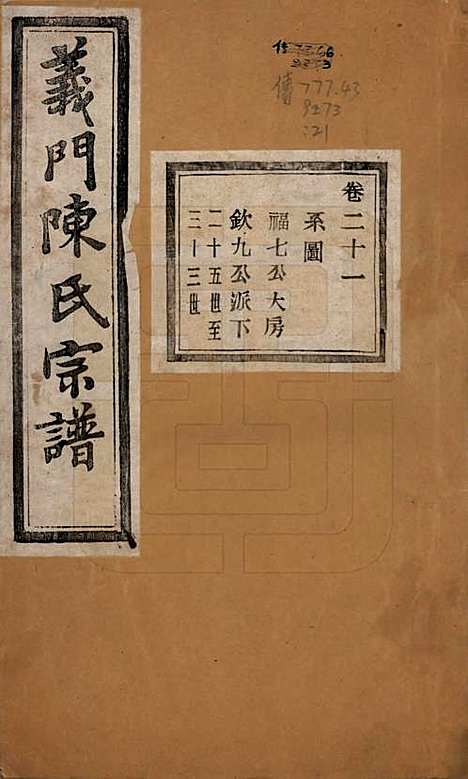 義門陳氏宗譜
卷二十一
系圖
福七公大房
欽九公派下
二十五世至
三十三世
傳777.43
8273
:21